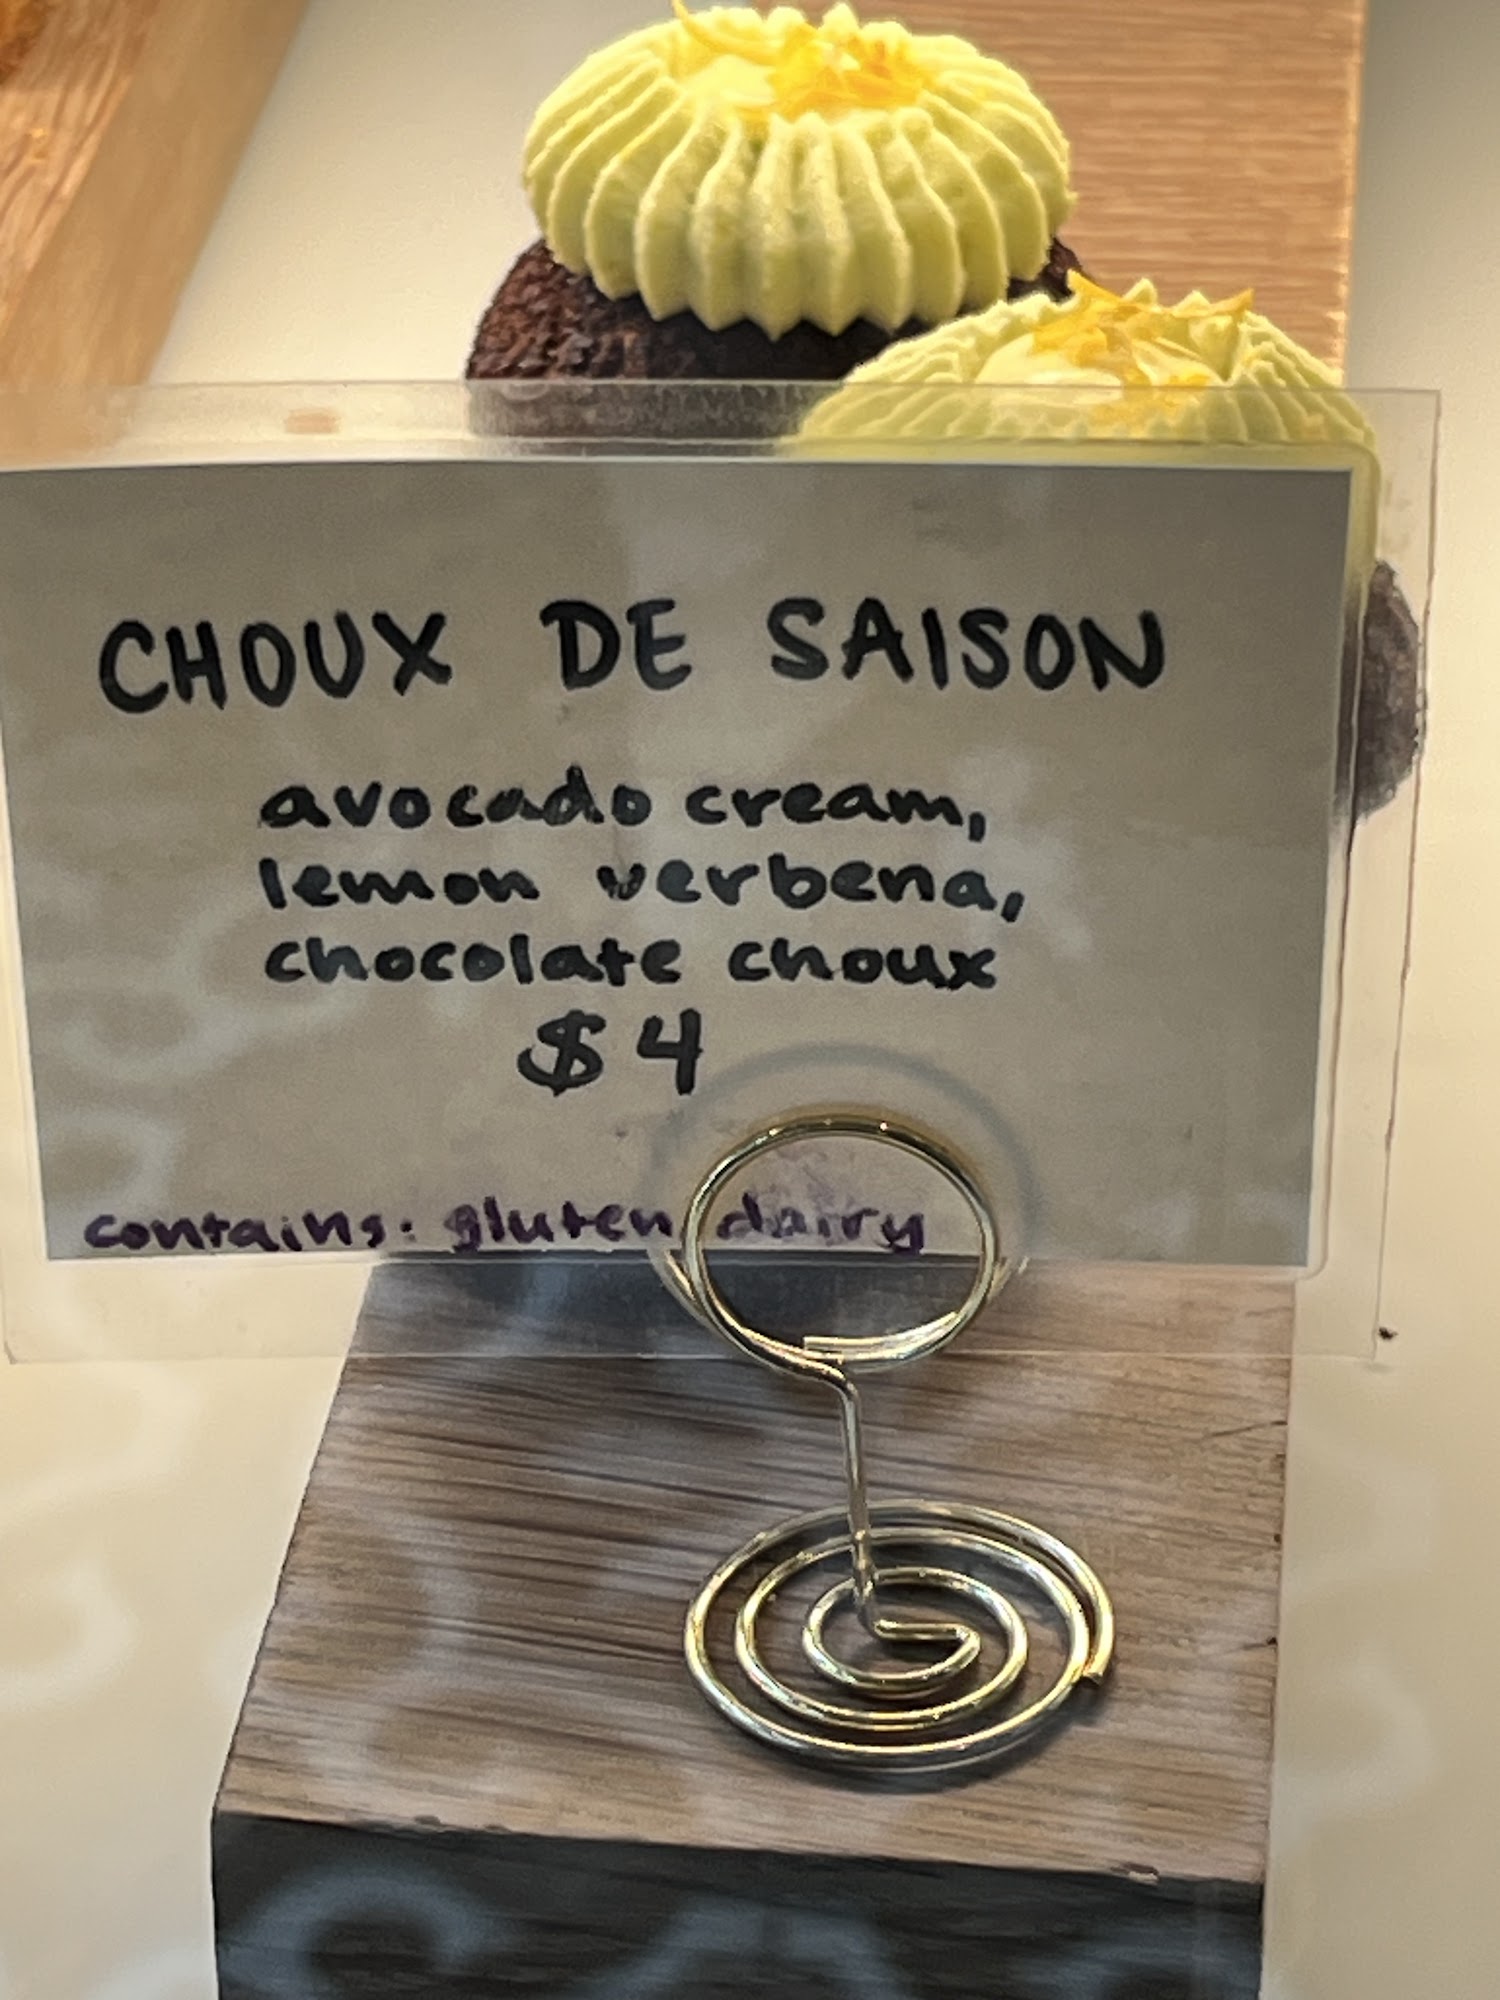 CHOUX DE SAISON
avocado cream,
lemon verbena,
chocolate choux
$4
contains: gluten dairy